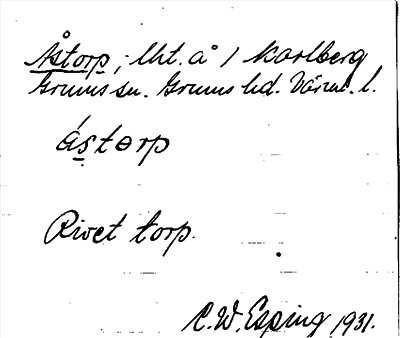 Åstorp, lht. å / Karlberg
Grums sn. Grums hd. Värml. l.
åstorp
Rivet torp.
C.W. Esping 1931.